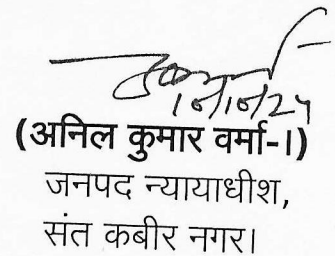 (अनिल कुमार वर्मा-।)
जनपद न्यायाधीश,
संत कबीर नगर।